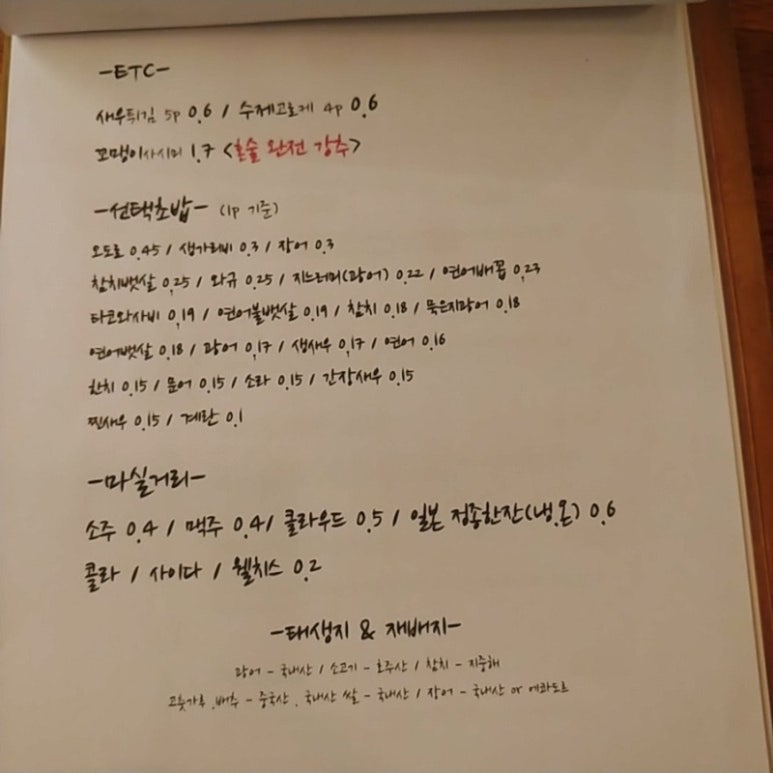 -ETC-
새우튀김 5p 0.6 / 수제고로케 4p 0.6
꼬맹이사시미 1.7 <혼술 완전 강추>
-선택초밥- (1p 기준)
오도로 0.45 / 생가리비 0.3 / 장어 0.3
참치뱃살 0.25 / 와규 0.25 / 지느러미(광어) 0.22 / 연어배꼽 0.23
타코와사비 0.19 / 연어불뱃살 0.19 / 참치 0.18 / 묵은지광어 0.18
연어뱃살 0.18 / 광어 0.17 / 생새우 0.17 / 연어 0.16
한치 0.15 / 문어 0.15 / 소라 0.15 / 간장새우 0.15
찐새우 0.15 / 계란 0.1
-마실거리-
소주 0.4 / 맥주 0.4 / 클라우드 0.5 / 일본 정종한잔(냉.온) 0.6
콜라 / 사이다 / 웰치스 0.2
-태생지 & 재배지-
광어 - 국내산 / 소고기 - 호주산 / 참치 - 지중해
고춧가루, 배추 - 중국산, 국내산 쌀 - 국내산 / 장어 - 국내산 or 에콰도르